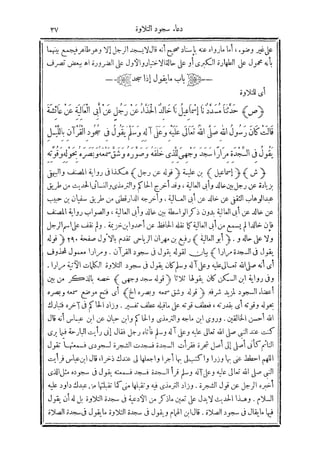 دعاء سجود التلاوة ٣٧
على غير وضوء، أما مارواه عنه بإسناد صحيح أنه قال لا يسجد الرجل إلا وهو طاهر فيجمع بينهما
بأنه محمول على الطهارة الكبرى أو على حالة الاختيار والاول على الضرورة اه ببعض تصرف
باب ما يقول إذا سجد
أى للتلاوة
﴿ص﴾ حَدَّثَنَا مُسَدَّدٌ نَا إِسْمَاعِيلُ نَا خَالِدٌ الْحَذَّاءُ عَنْ رَجُلٍ عَنْ أَبِى الْعَالِيَةِ عَنْ عَائِشَةَ
قَالَتْ كَانَ رَسُولُ اللهِ صَلَّى اللهُ تَعَالَى عَلَيْهِ وَعَلَى آلِهِ وَسَلَّمَ يَقُولُ فِى سُجُودِ الْقُرْآنِ بِاللَّيْلِ
يَقُولُ فِى السَّجْدَةِ مِرَارًا سَجَدَ وَجْهِىَ لِلَّذِى خَلَقَهُ وَصَوَّرَهُ وَشَقَّ سَمْعَهُ وَبَصَرَهُ بِحَوْلِهِ وَقُوَّتِهِ
﴿ش﴾ ﴿إسماعيل﴾ بن علية ﴿قوله عن رجل﴾ هكذا فى رواية المصنف والبيهقى
بزيادة عن رجل بين خالد وأبى العالية، وقد أخرج الحاكم والترمذى والنسائى الحديث من طريق
عبد الوهاب الثقفى عن خالد عن أبى العالية. وأخرجه الدارقطنى من طريق سفيان بن حبيب
عن خالد عن أبى العالية بدون ذكر الواسطة بين خالد وأبى العالية، والصواب رواية المصنف
فإن خالدا لم يسمع من أبى العالية كما نقله الحافظ عن أحمد وابن خزيمة. ولم نقف على اسم الرجل
ولا على حاله و. ﴿أبو العالية﴾ رفيع بن مهران الرياحى تقدم بالأول صفحة ٢٩٠ ﴿قوله
يقول فى السجدة مرارا﴾ بيان لقوله يقول فى سجود القرآن. ومرارا معمول لمحذوف
أى أنه صلى الله تعالى عليه وعلى آله وسلم كان يقول فى سجود التلاوة الكلمات الآتية مرارا.
وفى رواية ابن السكن كان يقولها ثلاثا ﴿قوله سجد وجهى﴾ خصه بالذكر من بين
أعضاء السجود لمزيد شرفه ﴿قوله وشق سمعه وبصره الخ﴾ أى فتح موضع سمعه وبصره
بحوله وقوته أى بقدرته، فعطف قوته على ماقبله عطف تفسير. وزاد الحاكم فى آخره فتبارك
الله أحسن الخالقين. وروى ابن ماجه والترمذى والحاكم وابن حبان عن ابن عباس أنه قال
كنت عند النبى صلى الله تعالى عليه وعلى آله وسلم فأتاه رجل فقال إنى رأيت البارحة فيما يرى
النائم كأنى أصلى إلى أصل شجرة فقرأت السجدة فسجدت الشجرة لسجودى فسمعتها تقول
اللهم احطط عنى بها وزرا واكتب لى بها أجرا واجعلها لى عندك ذخرا، قال ابن عباس فرأيت
النبى صلى الله تعالى عليه وعلى آله وسلم قرأ السجدة فسجد فسمعته يقول فى سجوده مثل الذى
أخبره الرجل عن قول الشجرة. وزاد الترمذى فيه وتقبلها منى كما تقبلتها من عبدك داود عليه
السلام. وهذا الحديث لا يدل على تعين ماذكر من الأدعية فى سجدة التلاوة بل له أن يقول
فيها مايقال فى سجود الصلاة. قال ابن الهمام ويقول فى سجدة التلاوة مايقول فى سجدة الصلاة